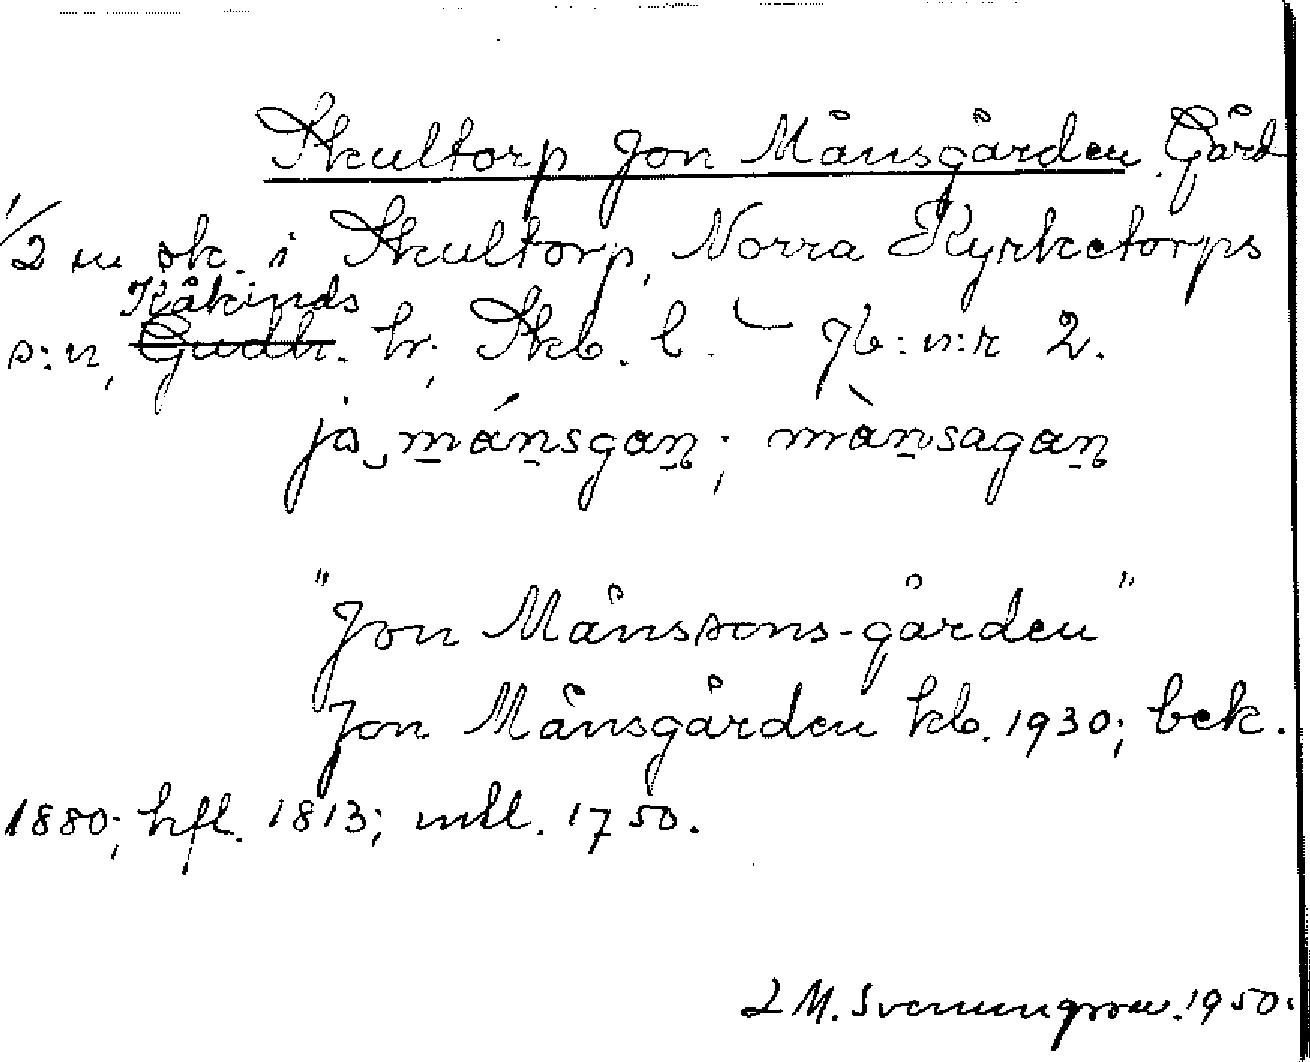 Skultorp Jon Månsgården Gård
1/2 m sk. i Skultorp, Norra Kyrketorps
Kåkinds
s:n, Gudh. hr, Skb. l. – Jb: n:r 2.
jo mánsgan; mànsagan
"Jon Månssons-gården"
Jon Månsgården kb. 1930; bek.
1880; hfl. 1813; mtl. 1750.
1950.